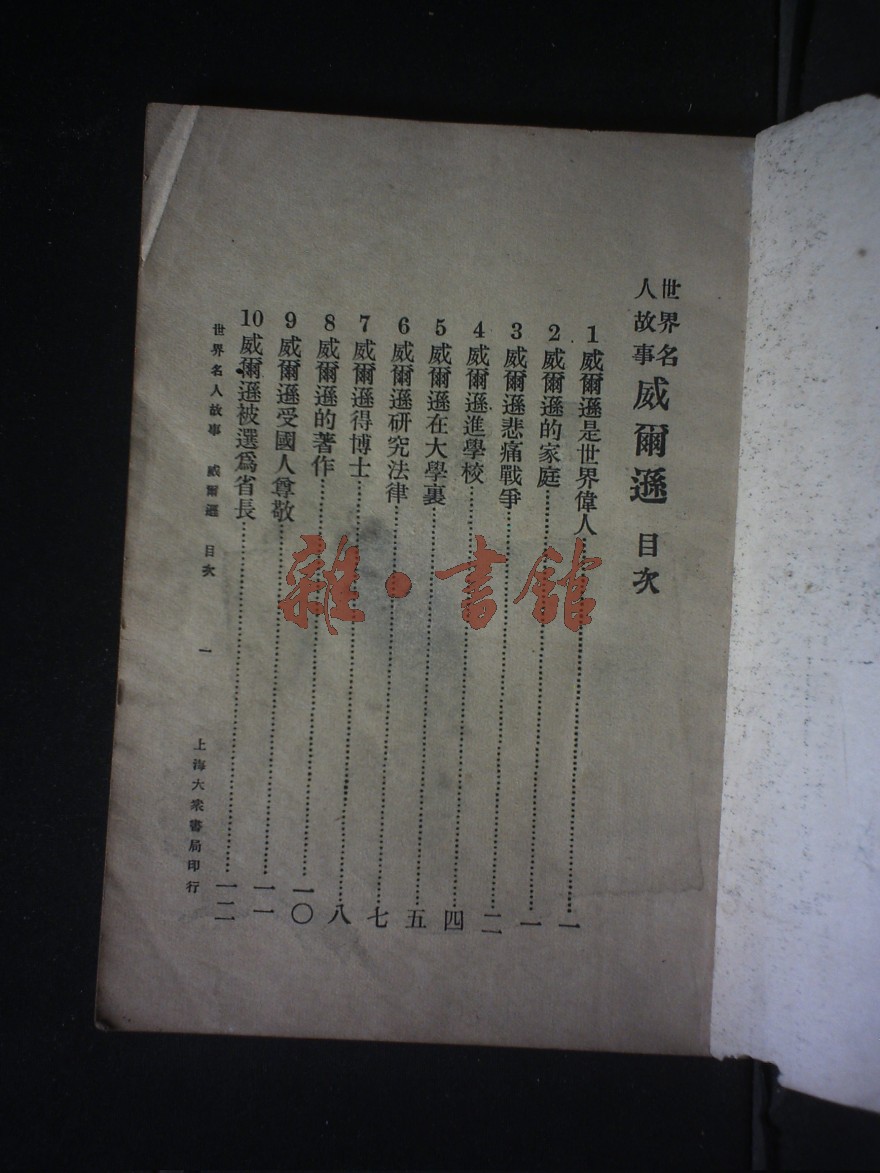 世界名人故事 威爾遜 目次
1 威爾遜是世界偉人……一
2 威爾遜的家庭……一
3 威爾遜悲痛戰爭……二
4 威爾遜進學校……四
5 威爾遜在大學裏……五
6 威爾遜研究法律……七
7 威爾遜得博士……八
8 威爾遜的著作……一〇
9 威爾遜受國人尊敬……一一
10 威爾遜被選爲省長……一二
世界名人故事 威爾遜 目次 一 上海大衆書局印行
雜·書館